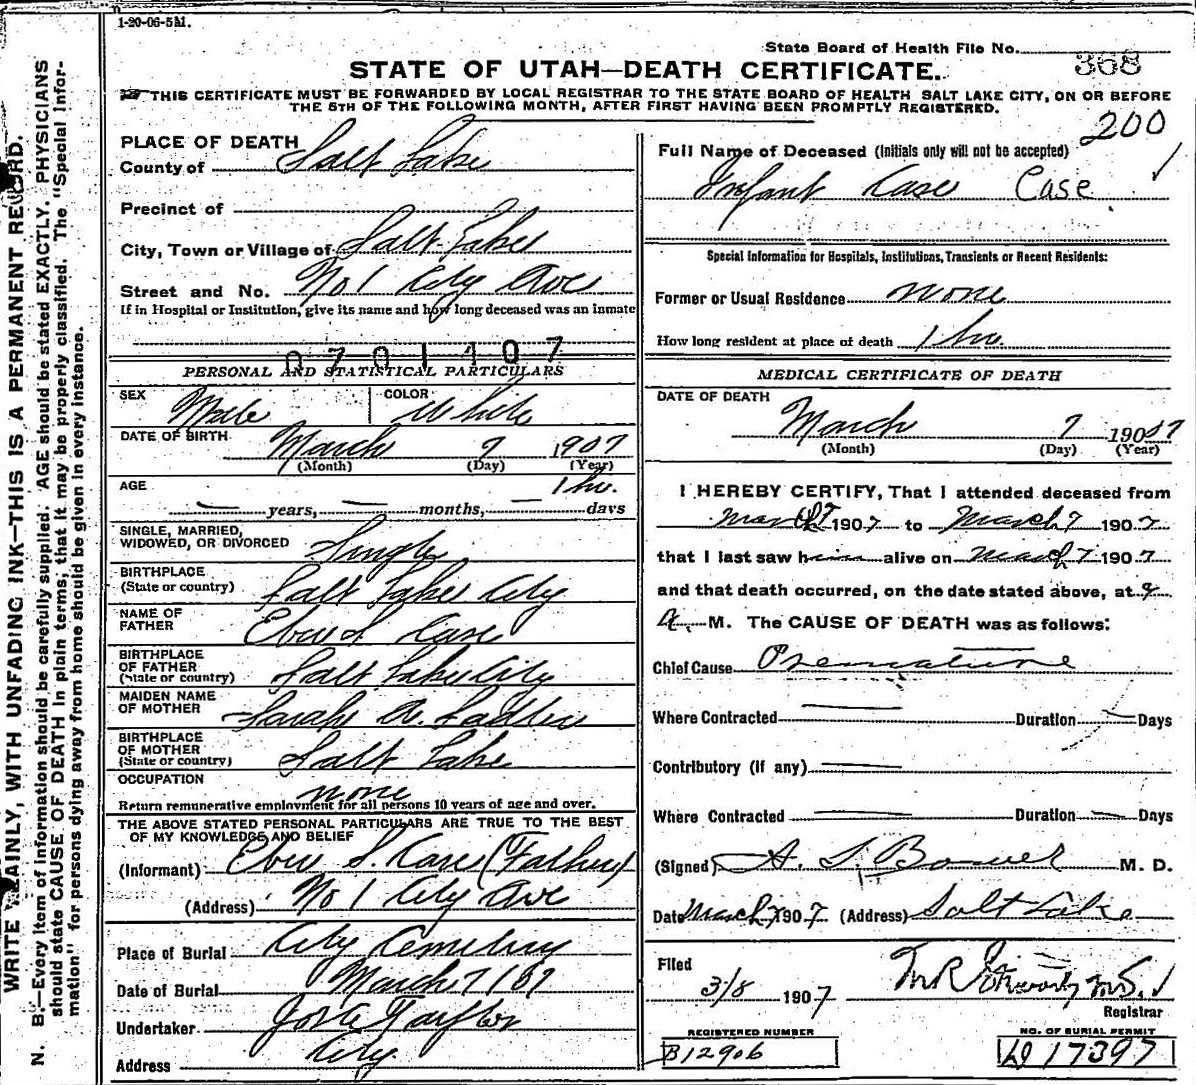 1-20-06-5M.
State Board of Health File No. 368
STATE OF UTAH—DEATH CERTIFICATE.
THIS CERTIFICATE MUST BE FORWARDED BY LOCAL REGISTRAR TO THE STATE BOARD OF HEALTH SALT LAKE CITY, ON OR BEFORE
THE 5TH OF THE FOLLOWING MONTH, AFTER FIRST HAVING BEEN PROMPTLY REGISTERED.
200
WRITE PLAINLY, WITH UNFADING INK—THIS IS A PERMANENT RECORD.
N. B.—Every item of information should be carefully supplied. AGE should be stated EXACTLY. PHYSICIANS
should state CAUSE OF DEATH in plain terms, that it may be properly classified. The "Special Infor-
mation" for persons dying away from home should be given in every instance.
PLACE OF DEATH
County of Salt Lake
Precinct of
City, Town or Village of Salt Lake
Street and No. No 1 City Ave
If in Hospital or Institution, give its name and how long deceased was an inmate
0701107
PERSONAL AND STATISTICAL PARTICULARS
SEX Male COLOR White
DATE OF BIRTH March 7 1907
(Month) (Day) (Year)
AGE 1 hr.
— years, — months, — days
SINGLE, MARRIED,
WIDOWED, OR DIVORCED Single
BIRTHPLACE
(State or country) Salt Lake City
NAME OF
FATHER Eber S. Case
BIRTHPLACE
OF FATHER
(State or country) Salt Lake City
MAIDEN NAME
OF MOTHER Sarah A.
BIRTHPLACE
OF MOTHER
(State or country) Salt Lake
OCCUPATION none
Return remunerative employment for all persons 10 years of age and over.
THE ABOVE STATED PERSONAL PARTICULARS ARE TRUE TO THE BEST
OF MY KNOWLEDGE AND BELIEF
(Informant) Eber S. Case (Father)
(Address) No 1 City Ave
Place of Burial City Cemetery
Date of Burial March 7
Undertaker Taylor
Address City
Full Name of Deceased (Initials only will not be accepted)
Infant Case Case
Special Information for Hospitals, Institutions, Transients or Recent Residents:
Former or Usual Residence none
How long resident at place of death 1 hr.
MEDICAL CERTIFICATE OF DEATH
DATE OF DEATH
March 7 1907
(Month) (Day) (Year)
I HEREBY CERTIFY, That I attended deceased from
March 7 1907 to March 7 1907
that I last saw him alive on March 7 1907
and that death occurred, on the date stated above, at 9
A. M. The CAUSE OF DEATH was as follows:
Chief Cause Premature
Where Contracted — Duration — Days
Contributory (if any) —
Where Contracted — Duration — Days
(Signed) M. D.
Date March 7 1907 (Address) Salt Lake
Filed
3/8 1907
Registrar
REGISTERED NUMBER
B12906
NO. OF BURIAL PERMIT
D 17397